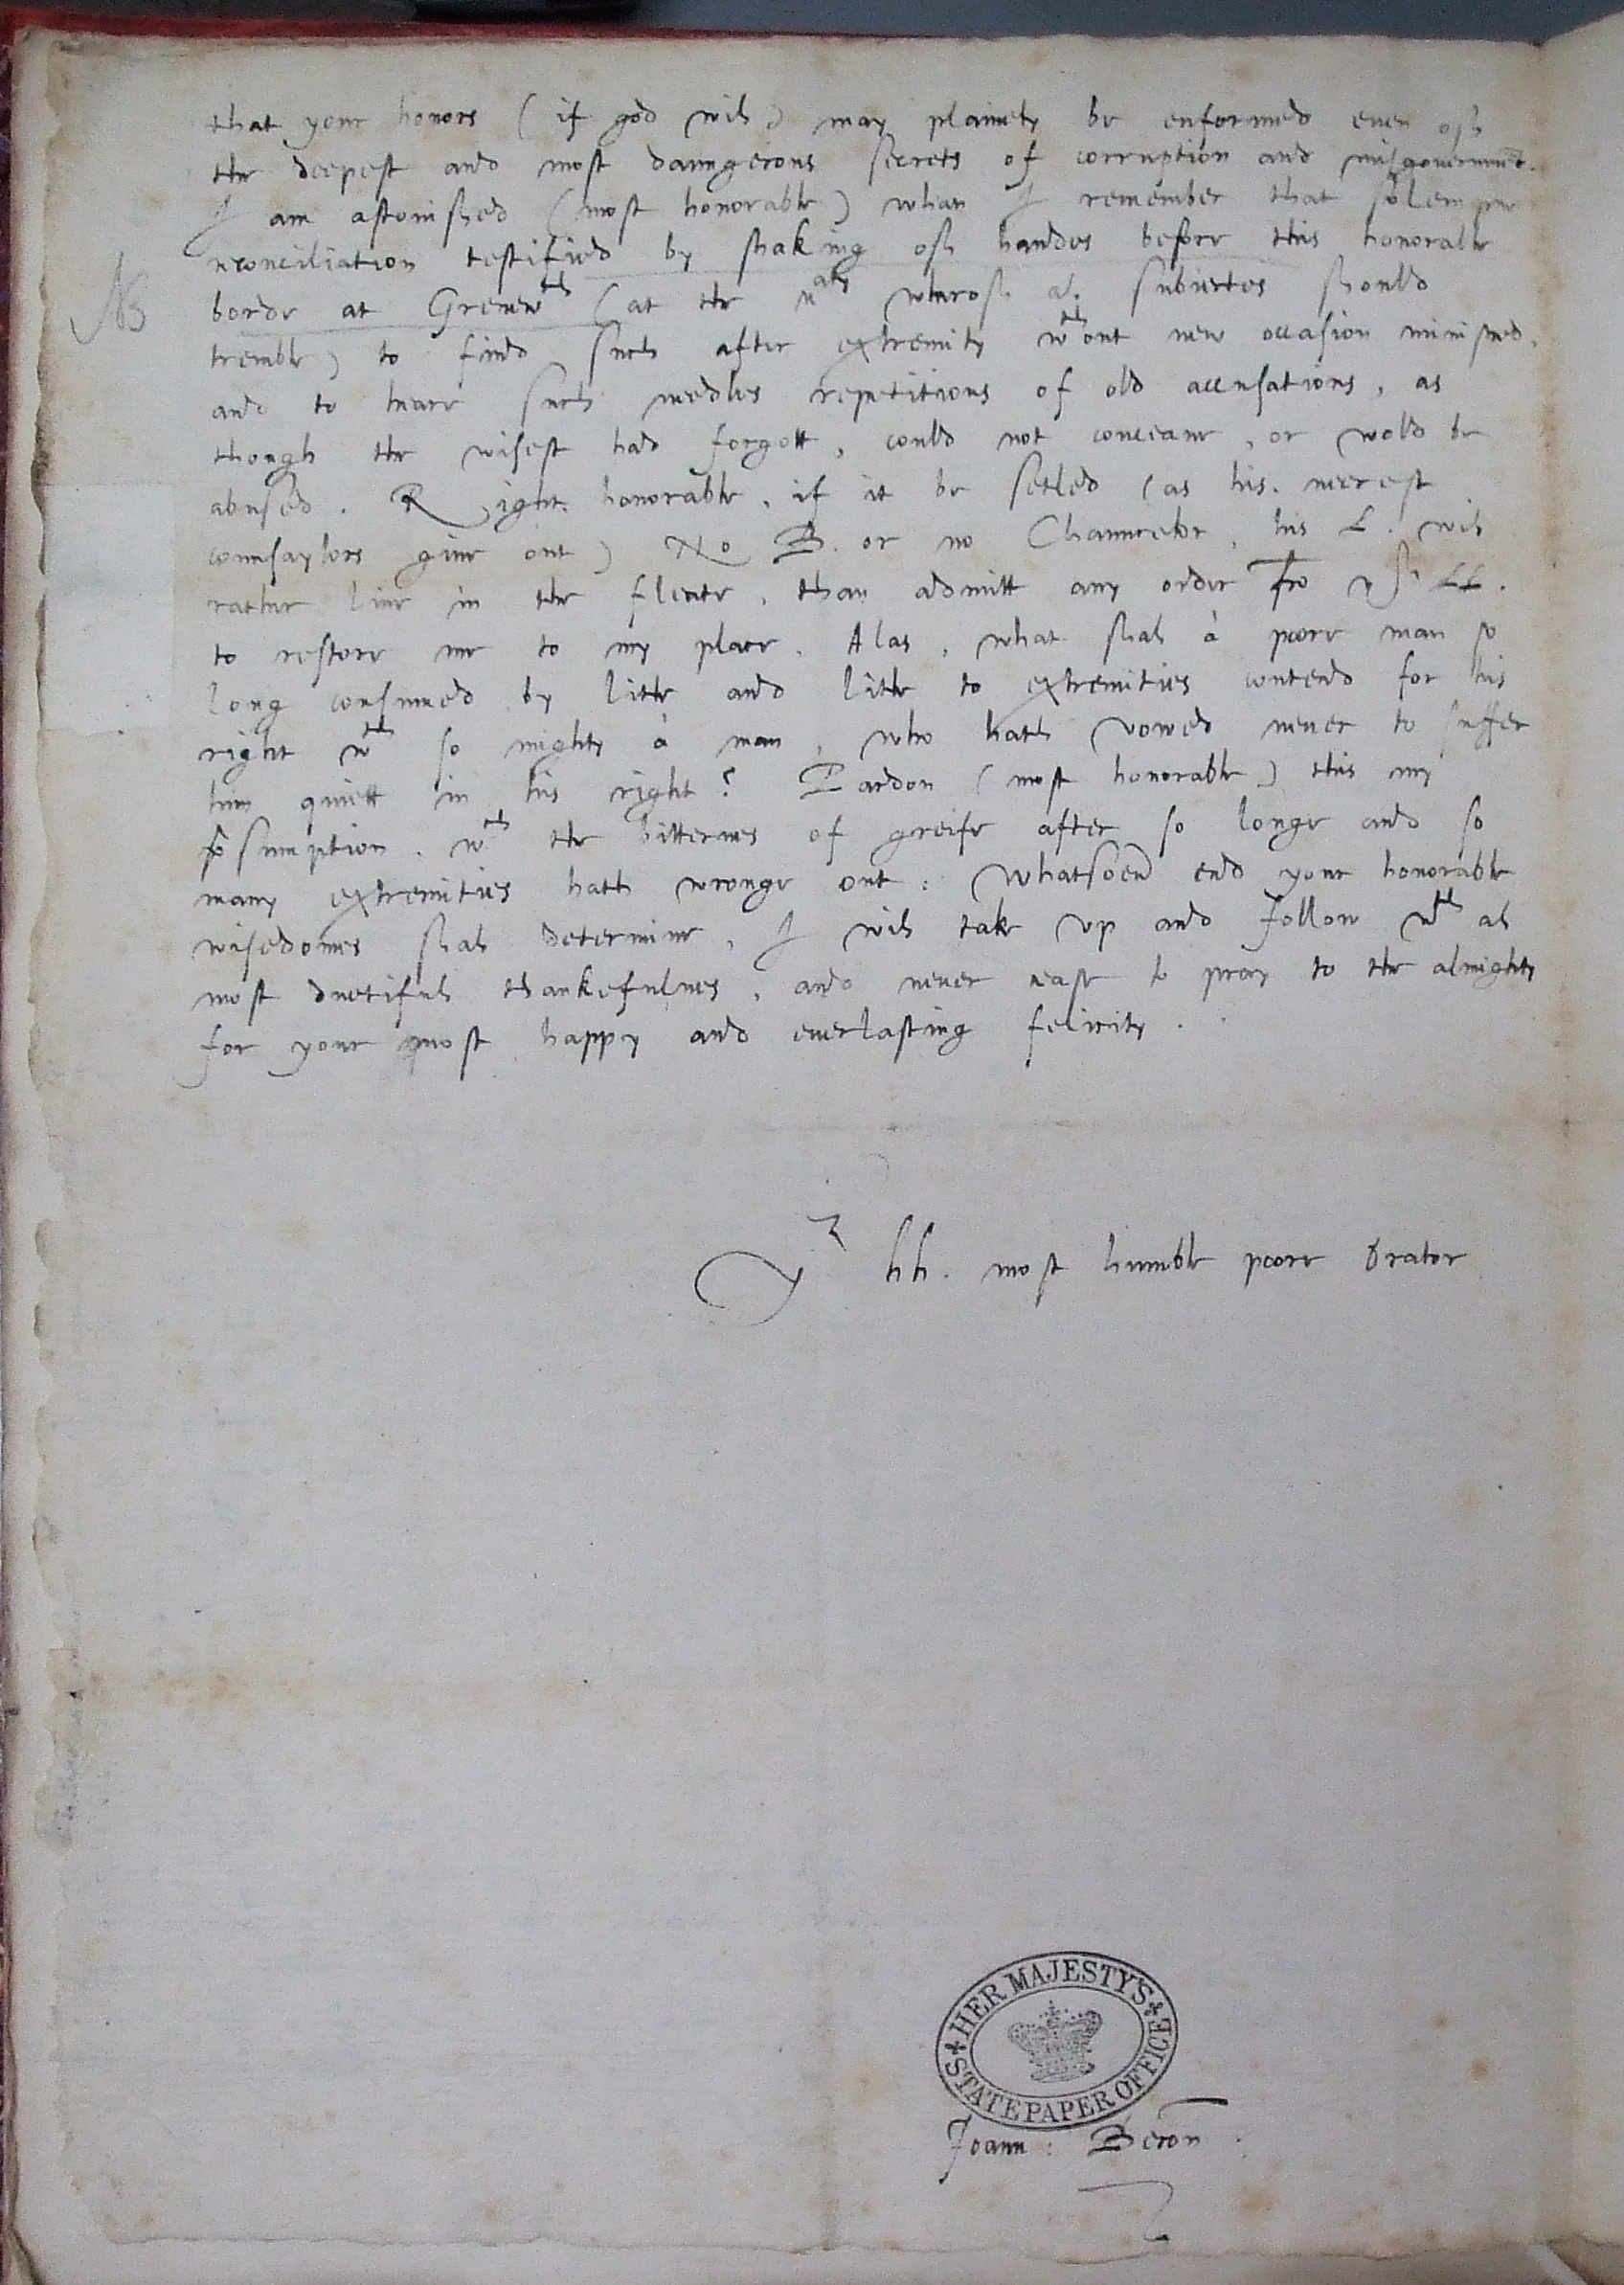 that your honors (if god will) may plainely be enformed even off
the deepest and most daungerous secrets of corruption and misgovernmt.
I am astonished (most honorable) whan I remember that solempne
reconciliation testified by shaking off handes before this honorable
NB
borde at Grenewch (at the wch subiectes should
tremble) to find such after extremity wthout new occasion ministred,
and to heare such needles repetitions of old accusations, as
though the wisest had forgott, could not conceave, or wold be
abused. Right honorable, if it be setled (as his neerest
counsaylors give out) No B. or no Chauncelor, his L. will
rather live in the fleete, than admitt any order fro yor LL.
to restore me to my place. Alas, what shall à poore man so
long consumed by litle and litle to extremities contend for his
right wth so mighty à man, who hath vowed never to suffer
him quiett in his right? Pardon (most honorable) this my
p̄sumption, wch the bitternes of greife after so longe and so
many extremities hath wronge out: Whatsoevr end your honorable
wisedomes shall determine, I will take up and follow wth all
most duetifull thankefulnes, and never cease to pray to the almighty
for your most happy and everlasting felicity.
Yr hh. most humble poore Orator
HER MAJESTY'S STATE PAPER OFFICE
Joann: Beton̄.